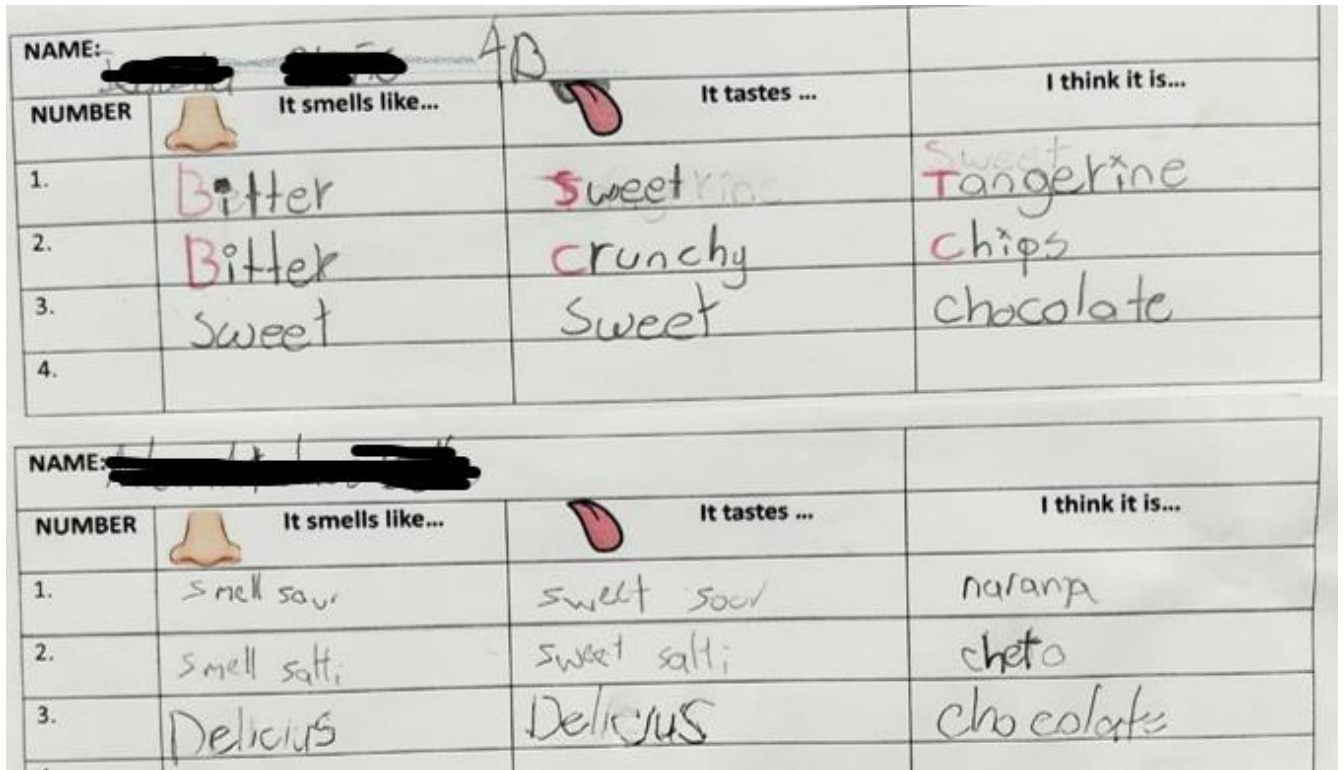 NAME: 4B
NUMBER It smells like... It tastes ... I think it is...
1. Bitter Sweet Tangerine
2. Bitter Crunchy Chips
3. Sweet Sweet chocolate
4.
NAME:
NUMBER It smells like... It tastes ... I think it is...
1. smell sour sweet sour naranja
2. smell salti sweet salti cheto
3. Delicius Delicius chocolate